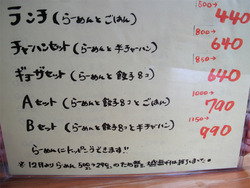 ランチ(らーめんとごはん) 500→ 440
チャーハンセット(らーめんと半チャーハン) 800→ 640
ギョーザセット(らーめんと餃子8コ) 850→ 640
Aセット(らーめんと餃子8コとごはん) 1000→ 790
Bセット(らーめんと餃子8コと半チャーハン) 1150→ 990
らーめんにトッピングできます!!
※12月よりらーめん 500→290 の